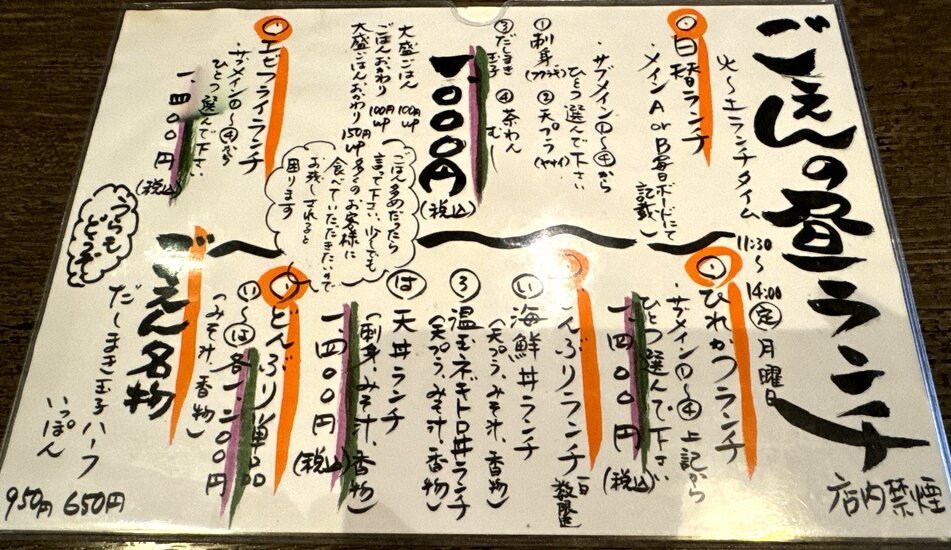 ごえんの昼ランチ
店内禁煙
火〜土ランチタイム
11:30〜14:00
定 月曜日
日替ランチ
・メインA or B 毎日ボードにて記載
・サブメイン①〜④から
ひとつ選んで下さい
①刺身
②天プラ
③だしまき玉子
④茶わんむし
一、〇〇〇円(税込)
大盛ごはん 100円up
ごはんおかわり 100円up
大盛ごはんおかわり 150円up
ごはん多めだったら
言って下さい、少しでも
多くのお客様に
食べていただきたいので
お残しされると
困ります
エビフライランチ
・サブメイン①〜④から
ひとつ選んで下さい
一、四〇〇円(税込)
ひれかつランチ
・サブメイン①〜④上記から
ひとつ選んで下さい
一、四〇〇円(税込)
どんぶりランチ
数限定
い 海鮮丼ランチ
(天プラ、みそ汁、香物)
ろ 温玉ネギトロ丼ランチ
(天プラ、みそ汁、香物)
は 天丼ランチ
(刺身、みそ汁、香物)
一、四〇〇円(税込)
どんぶり単品
い〜は 各一、二〇〇円
(みそ汁、香物)
ごえん名物
こちらもどうぞ
だしまき玉子ハーフ
いっぽん
650円
950円